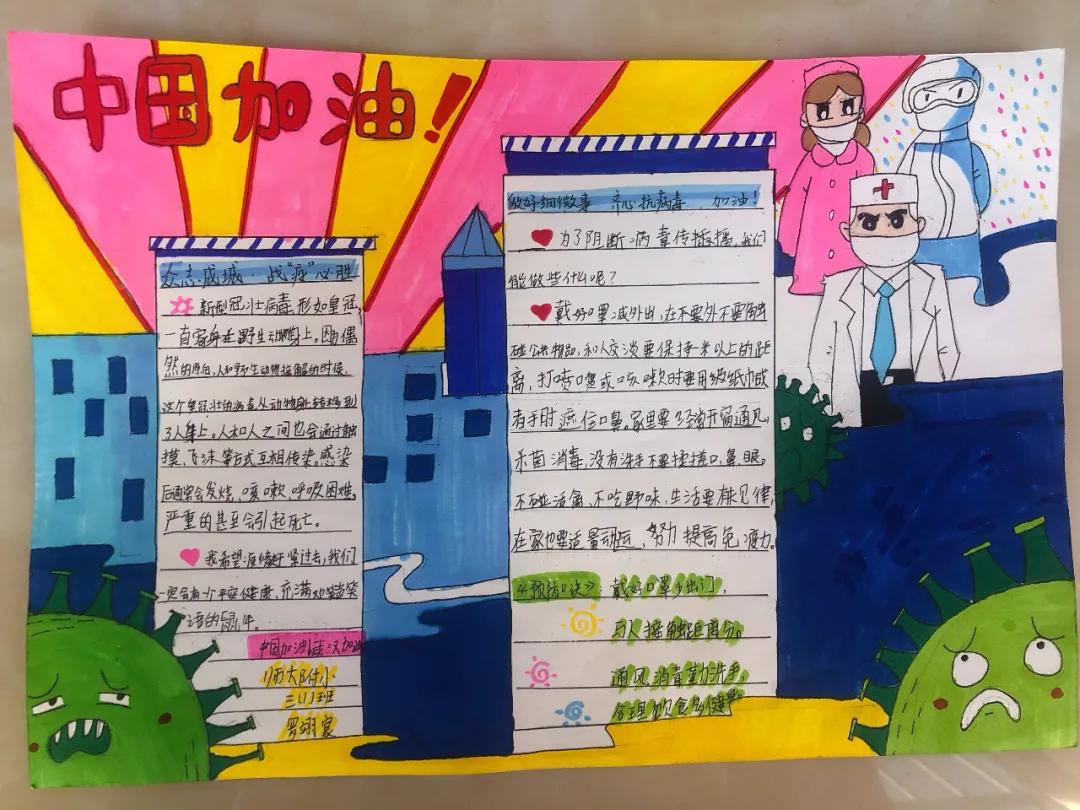 中国加油!
众志成城·战"疫"必胜
新型冠壮病毒,形如皇冠,
一直寄身在野生动物身上。因为偶
然的原因,人和野生动物接触的时候,
这个皇冠壮的病毒从动物身上转移到
了人身上。人和人之间也会通过触
摸、飞沫等方式互相传染。感染
后通常会发烧、咳嗽、呼吸困难。
严重的甚至会引起死亡。
我希望疫情赶紧过去,我们
一定会有一个平安健康、充满欢声笑
语的鼠年。
中国加油!武汉加油
师大附小
三(1)班
罗翊宸
做好细微事 齐心抗病毒 加油!
为了阴断病毒传播,我们
能做些什么呢?
戴好口罩减外出,在不要外不要触
碰公共物品,和人交谈要保持一米以上的距
离,打喷嚏或咳嗽时要用纸巾或
者手肘遮住口鼻。家里要经常开窗通风,
杀菌消毒,没有洗手不要揉搓口、鼻、眼。
不碰活禽,不吃野味,生活要有规律,
在家也要适量动运,努力提高免疫力。
《预防口诀》:戴好口罩少出门,
与人接触距离分。
通风消毒勤洗手,
合理饮食